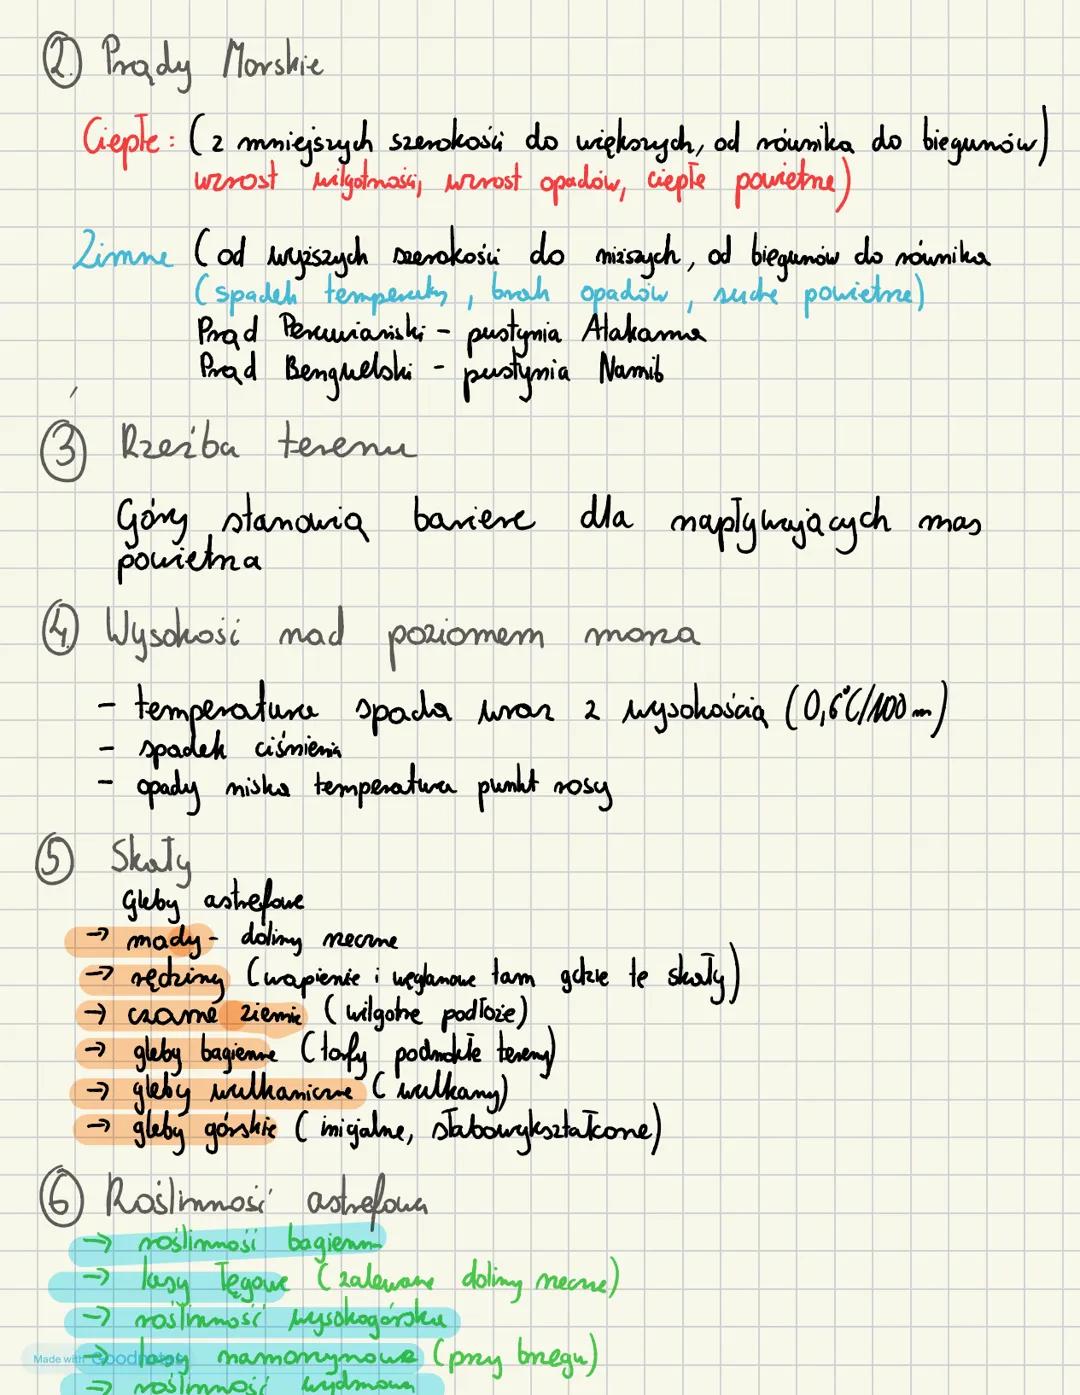 2. Prądy Morskie
Ciepłe: (z mniejszych szerokości do większych, od równika do biegunów)
wzrost wilgotności, wzrost opadów, ciepłe powietrze)
Zimne (od wyższych szerokości do niższych, od biegunów do równika
(spadek temperatury, brak opadów, suche powietrze)
Prąd Peruwiański - pustynia Atakama
Prąd Benguelski - pustynia Namib
3 Rzeźba terenu
Góry stanowią bariere dla napływających mas
powietrza
4. Wysokość nad poziomem morza
- temperatura spada wraz z wysokością (0,6°C/100m)
- spadek ciśnienia
- opady niska temperatura punkt rosy
5 Skały
Gleby astrefowe
→ mady - doliny rzeczne
→ rędziny (wapienie i węglanowe tam gdzie te skały)
→ czarne ziemie (wilgotne podłoże)
→ gleby bagienne (torfy podmokłe tereny)
→ gleby wulkaniczne (wulkany)
→ gleby górskie (inicjalne, słabowykształcone)
6 Roślinność astrefowa
→ roślinność bagienna
→ lasy łęgowe (zalewane doliny rzeczne)
→ roślinność wysokogórska
→ lasy namorzynowe (przy brzegu)
Made with Goodnotes
→ roślinność wydmowa